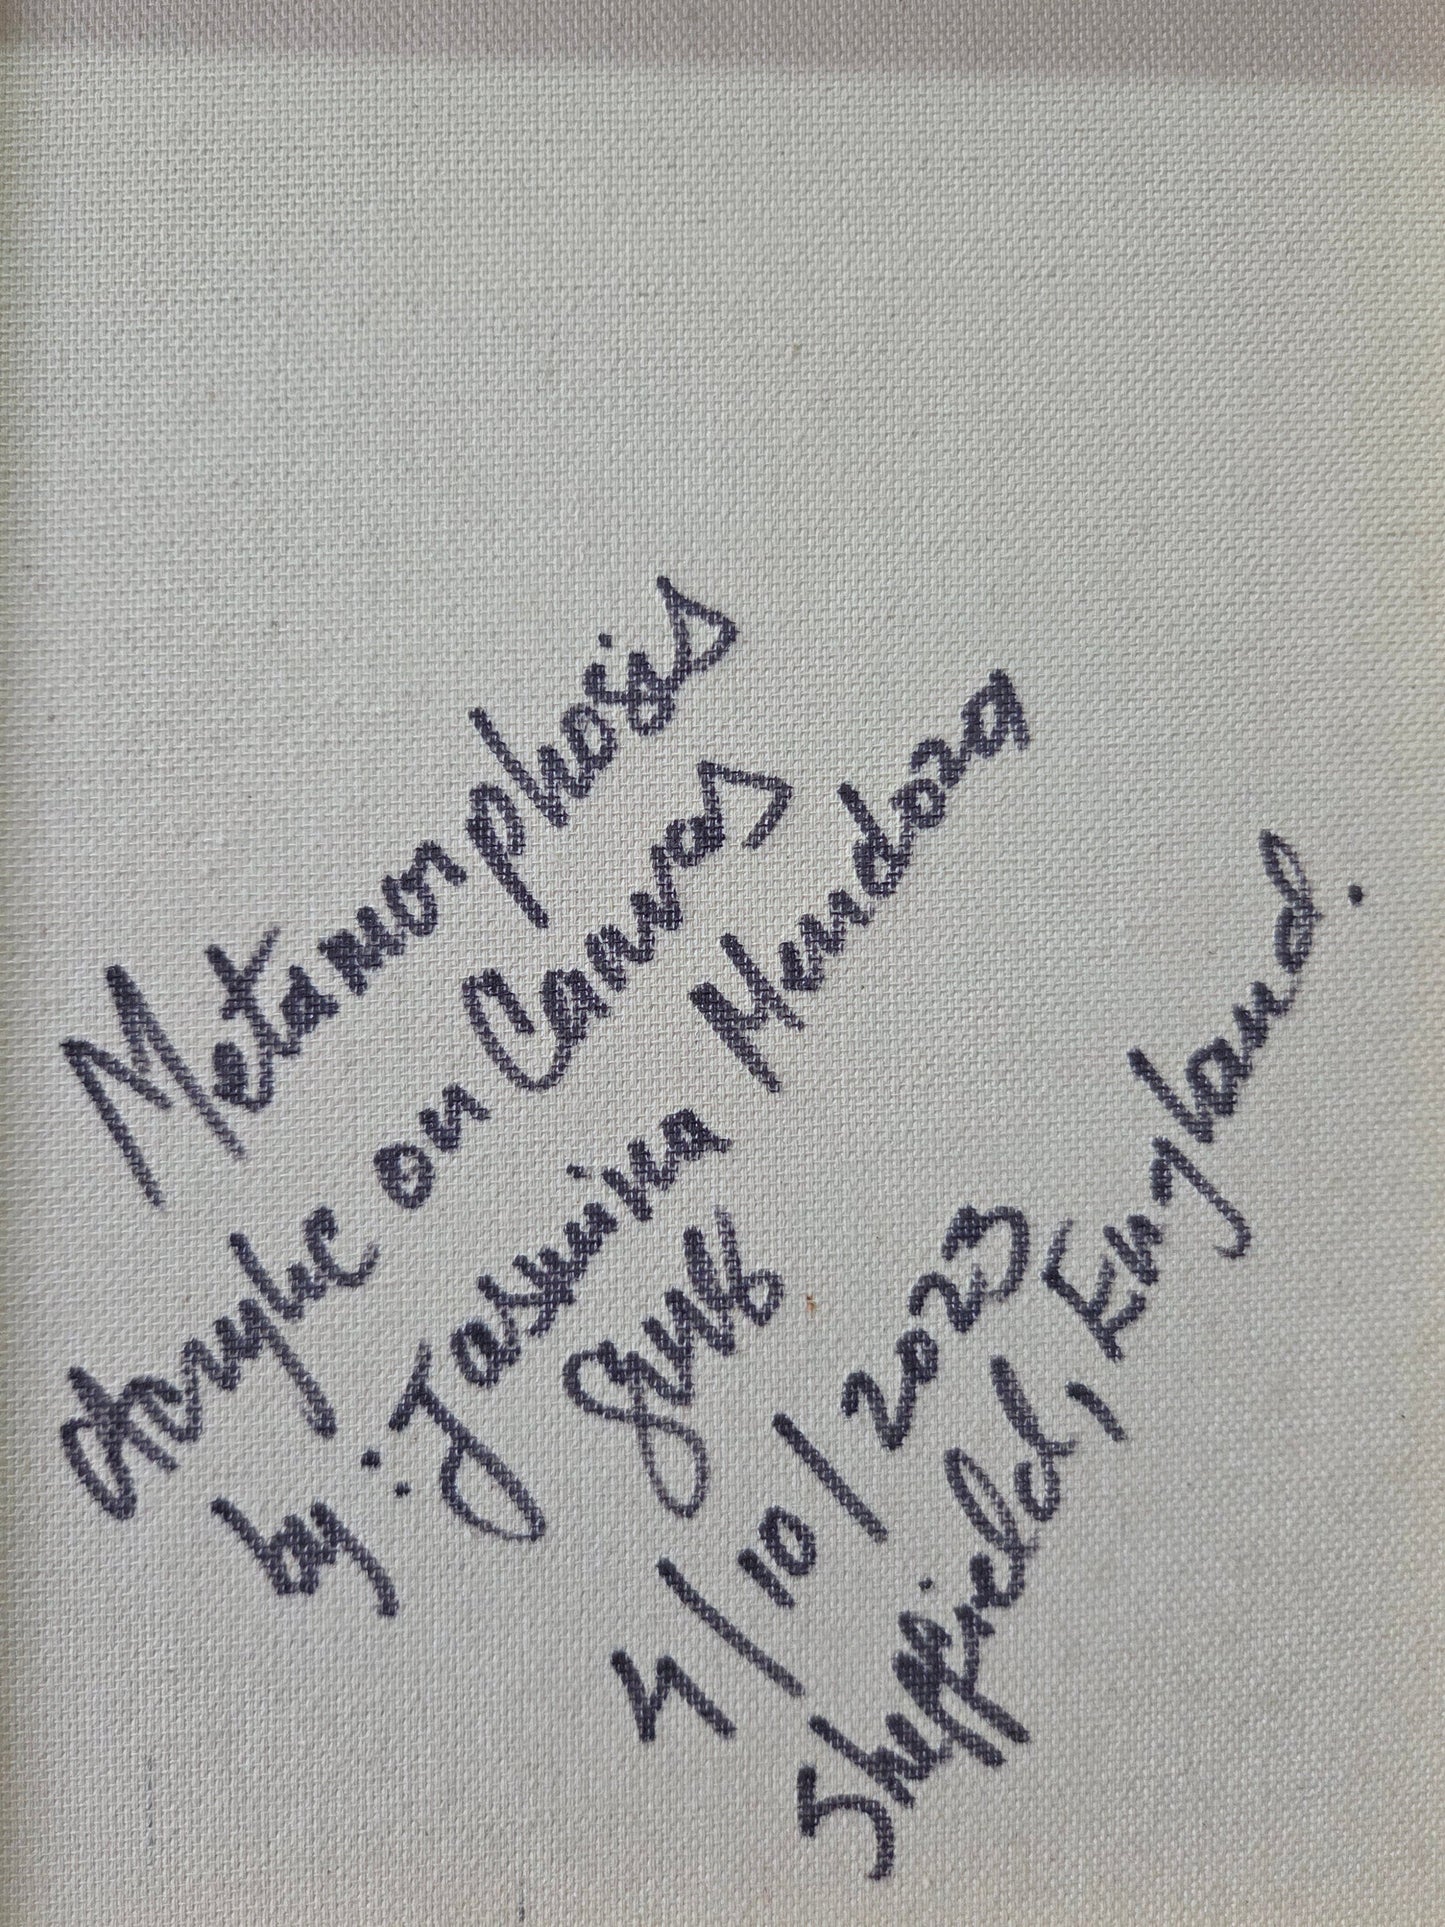 Metamorphosis
Acrylic on Canvas
by: Jasmina Mendoza
4/10/2023
Sheffield, England.